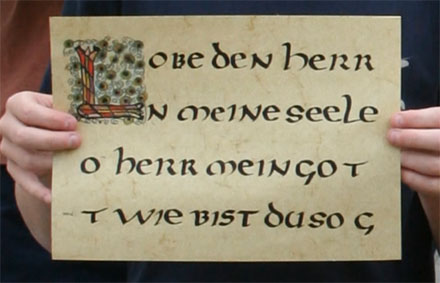 LOBE DEN HERR
N MEINE SEELE
O HERR MEIN GOT
T WIE BIST DU SO G